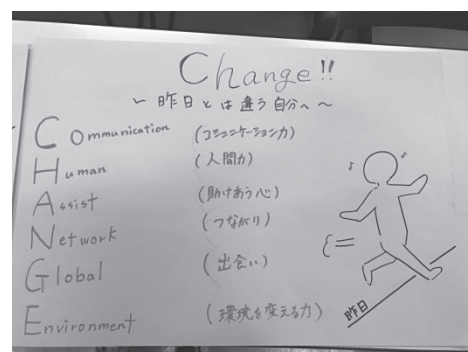 Change!!
～昨日とは違う自分へ～
Communication (コミュニケーション力)
Human (人間力)
Assist (助けあう心)
Network (つながり)
Global (出会い)
Environment (環境を変える力)
昨日